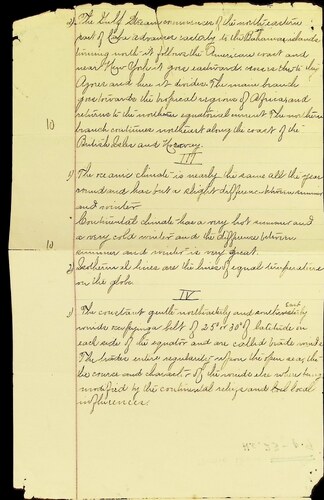 2) The Gulf Stream commences of the northeastern
part of Cuba advances easterly to the Bahama islands
turning north it follows the American coast and
near New York it goes eastwards crosses the to the
Azores and here it divides. The main branch
goes towards the tropical regions of Africa and
returns to the northern equatorial current. The northern
10
branch continues northeast along the coast of the
British Isles and Norway.
III
1) The oceanic climate is nearly the same all the year
round and has but a slight difference between summer
and winter.
Continental climate has a very hot summer and
10
a very cold winter and the difference between
summer and winter is very great.
2) Isothermal lines are the lines of equal temperature
on the globe.
IV
1) The constant gentle northeasterly and southeasterly
East
winds occupying a belt of 25° or 30° of latitude on
each side of the equator and are called trade winds.
The trades entire regularity upon the open seas, the
the course and character of the winds else where being
modified by the continental reliefs and local
influences.